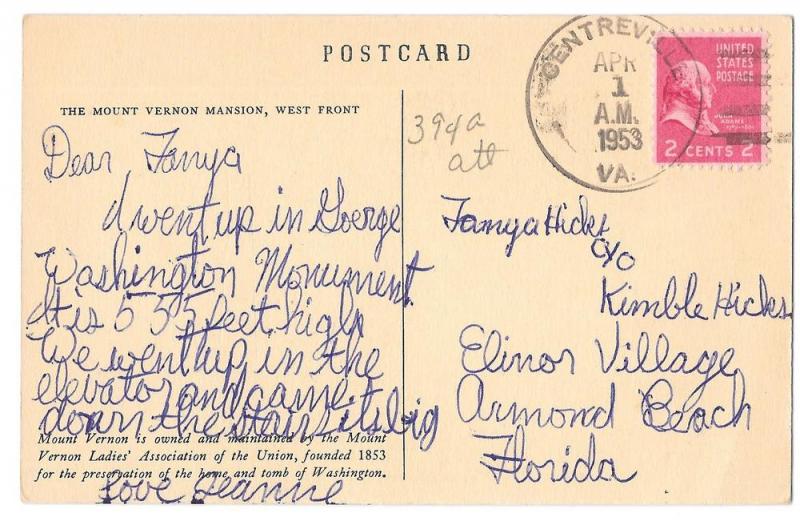 POSTCARD
THE MOUNT VERNON MANSION, WEST FRONT
Dear Tanya
I went up in Goerge
Washington Monument.
It is 555 feet high
We went up in the
elevator and came
down the stairs its big
Mount Vernon is owned and maintained by the Mount
Vernon Ladies' Association of the Union, founded 1853
for the preservation of the home and tomb of Washington.
Love Jeanne
394a
att
CENTREVILLE
APR
1
A.M.
1953
VA.
UNITED
STATES
POSTAGE
JOHN
ADAMS
2 CENTS 2
Tanya Hicks
c/o
Kimble Hicks
Elinor Village
Armond Beach
Florida